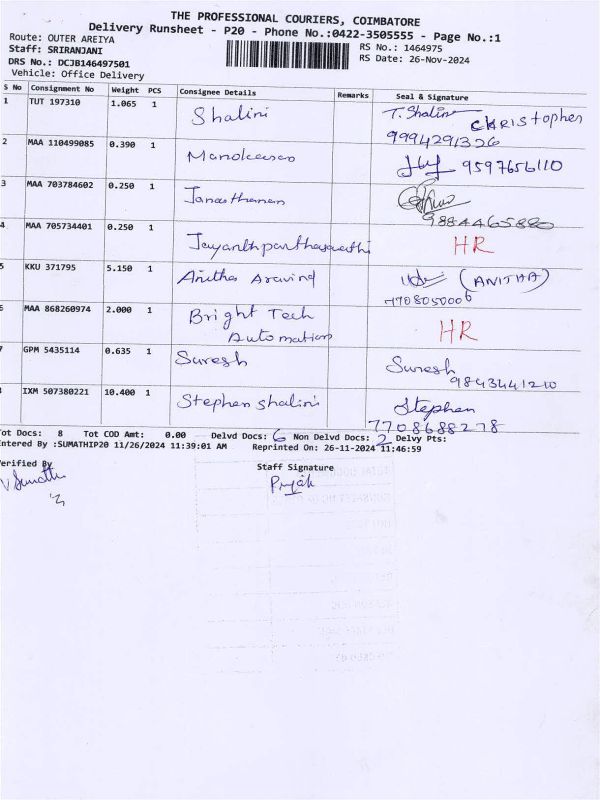 THE PROFESSIONAL COURIERS, COIMBATORE
Delivery Runsheet - P20 - Phone No.:0422-3505555 - Page No.:1
Route: OUTER AREIYA
RS No.: 1464975
Staff: SRIRANJANI
RS Date: 26-Nov-2024
DRS No.: DCJB146497501
Vehicle: Office Delivery
S No Consignment No Weight PCS Consignee Details Remarks Seal & Signature
1 TUT 197310 1.065 1 Shalini T. Shalini Christopher
9994291326
2 MAA 110499085 0.390 1 9597656110
3 MAA 703784602 0.250 1
9884465880
4 MAA 705734401 0.250 1 Jayanthparthasarathi HR
5 KKU 371795 5.150 1 Anitha Aravind (ANITHA)
7708050006
6 MAA 868260974 2.000 1 Bright Tech HR
Automation
7 GPM 5435114 0.635 1 Suresh Suresh
9843441210
IXM 507380221 10.400 1 Stephen shalini Stephen
7708688278
Tot Docs: 8 Tot COD Amt: 0.00 Delvd Docs: 6 Non Delvd Docs: 2 Delvy Pts:
Entered By :SUMATHIP20 11/26/2024 11:39:01 AM Reprinted On: 26-11-2024 11:46:59
Verified By
Staff Signature